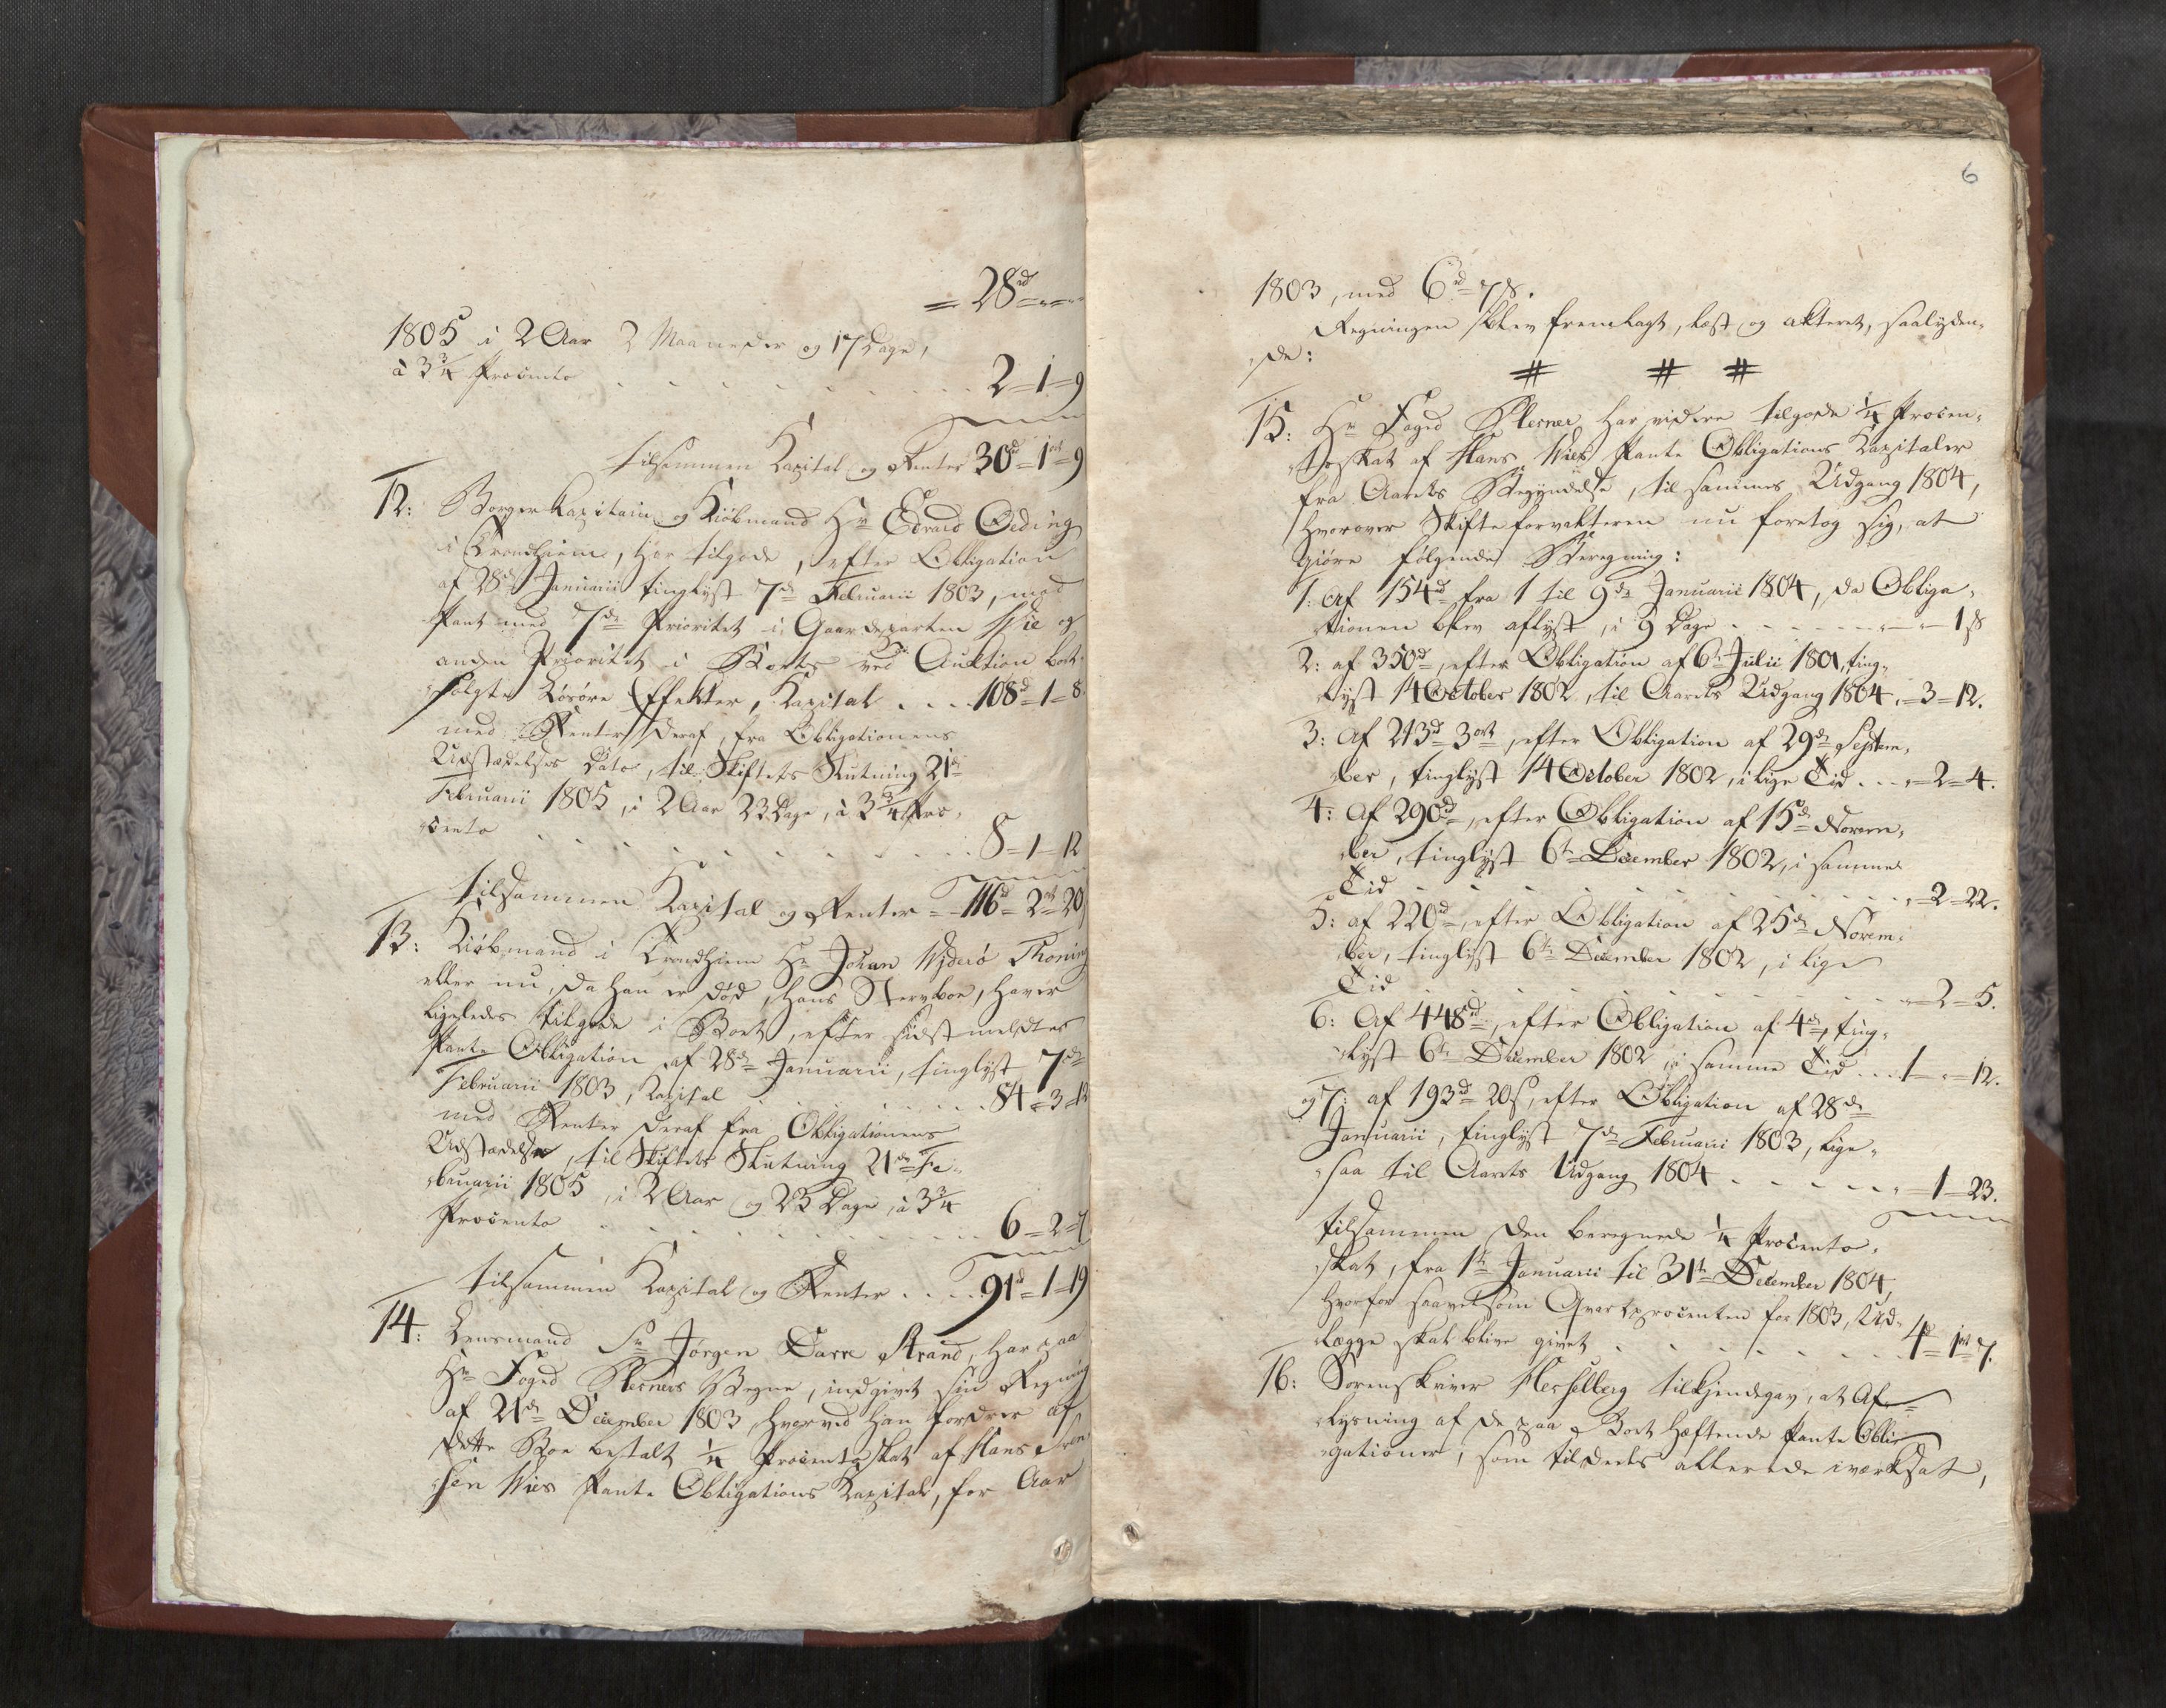 = 28rd = " = "
1805 i 2 Aar 2 Maaneder og 17 Dage,
à 3¾ Procento . . . . . . . 2 = 1 = 9
tilsammen Kapital og Renter 30d = 1ort = 9
12: Borger Kapitain og Kiøbmand Hr Edvard Oeding
i Trondhiem, har tilgode, efter Obligation
af 28de Januarii tinglyst 7de Februarii 1803, mod
Pant med 7de Prioritet i Gaardeparten Wie og
anden Prioritet i Boets ved Auktion bort-
solgte Løsøre Effekter, Kapital . . . . 108d = 1 = 8.
med Renter deraf, fra Obligationens
Udstædelses Dato, til Skiftets Slutning 21de
Februarii 1805, i 2 Aar 23 Dage, à 3¾ Pro-
cento . . . . . . . . 8 = 1 = 12
tilsammen Kapital og Renter = 116d = 2ort = 20
13: Kiøbmand i Trondhiem Hr Johan Widerø Thoning
eller nu, da han er død, hans Sterboe, haver
ligeledes tilgode i Boet, efter sidstmeldte
Pante Obligation af 28de Januarii, tinglyst 7de
Februarii 1803, Kapital . . . . . . 84 = 3 = 12
med Renter deraf fra Obligationens
Udstædelse, til Skiftets Slutning 21de Fe-
bruarii 1805, i 2 Aar og 23 Dage, à 3¾
Procento . . . . . . . . 6 = 2 = 7
tilsammen Kapital og Renter . . . . 91d = 1 = 19
14: Lensmand Sr Jørgen Darre Strand, har paa
Hr Foged Plesners Vegne, indgivet sin Regning
af 21de December 1803, hvorved han fordrer af
dette Boe betalt ¼ Procentoskat af Hans Iven-
sen Wies Pante Obligations Kapital, for Aar
6
1803, med 6rd = 7s.
Regningen blev fremlagt, læst og akteret, saalyden-
de:
# # #
15: Hr Foged Plesner har videre tilgode ¼ Procen-
toskat af Hans Wies Pante Obligations Kapitaler
fra Aarets Begyndelse, til sammes Udgang 1804,
hvorover Skifteforvalteren nu foretog sig, at
giøre følgende Beregning:
1: Af 154d fra 1 til 9de Januarii 1804, da Obliga-
tionen blev aflyst, i 9 Dage . . . . . . " = " = 1s
2: af 350d, efter Obligation af 6te Julii 1801, ting-
lyst 14 October 1802, til Aarets Udgang 1804. " = 3 = 12.
3: Af 213d 3ort, efter Obligation af 29de Septem-
ber, tinglyst 14 October 1802, i lige Tid . . . " = 2 = 4.
4: Af 290d, efter Obligation af 15de Novem-
ber, tinglyst 6te December 1802, i samme
Tid . . . . . . . . . . " = 2 = 22.
5: af 220d, efter Obligation af 25de Novem-
ber, tinglyst 6te December 1802, i lige
Tid . . . . . . . . . . " = 2 = 5.
6: Af 448d, efter Obligation af 4de, ting-
lyst 6te December 1802, i samme Tid . . . 1 = " = 12.
og 7: af 193d 20s, efter Obligation af 28de
Januarii, tinglyst 7de Februarii 1803, lige-
saa til Aarets Udgang 1804 . . . . . . " = 1 = 23.
tilsammen den beregnede ¼ Procento-
skat, fra 1te Januarii til 31te December 1804,
hvorfor saavelsom Qvartprocenten for 1803, Ud-
lægge skal blive givet . . . . . . . 4d = 1ort = 7.
16: Sorenskriver Hesselberg tilkjendegav, at Af-
lysning af de paa Boet hæftende Pante Obli-
gationer, som tildeels allerede iværksat,